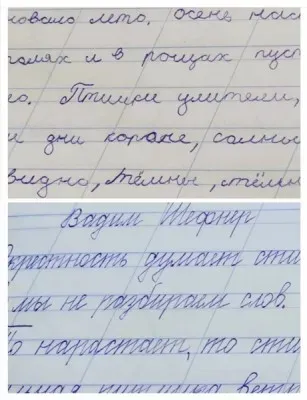 новало лето. Осень нас
полях и в рощах пуст
но. Птички улетели,
и дни короче, солныш
видно, тёмны, тёмны
Вадим Шефнер
Окрестность думает сти
мы не разбираем слов.
То нарастает, то сти
тишина